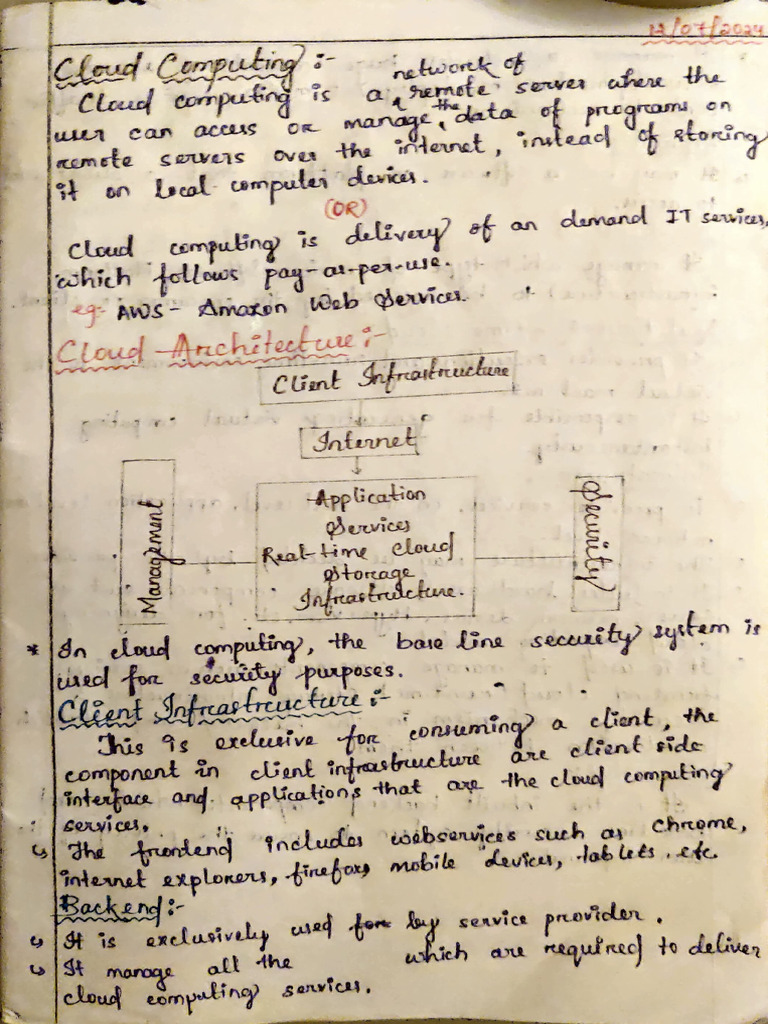 12/07/2024
Cloud Computing :-
Cloud computing is a network of remote server where the
user can access or manage the data of programs on
remote servers over the internet, instead of storing
it on local computer devices.
(OR)
Cloud computing is delivery of an demand IT services,
which follows pay-as-per-use.
eg- AWS - Amazon Web Services.
Cloud Architecture :-
Client Infrastructure
Internet
Management
Application
Services
Real-time Cloud
Storage
Infrastructure.
Security
* In cloud computing, the base line security system is
used for security purposes.
Client Infrastructure :-
This is exclusive for consuming a client, the
component in client infrastructure are client side
interface and applications that are the cloud computing
services.
↳ The frontend includes webservices such as Chrome,
internet explorers, firefox, mobile devices, tablets. etc.
Backend :-
↳ It is exclusively used for by service provider.
↳ It manage all the which are required to deliver
cloud computing services.